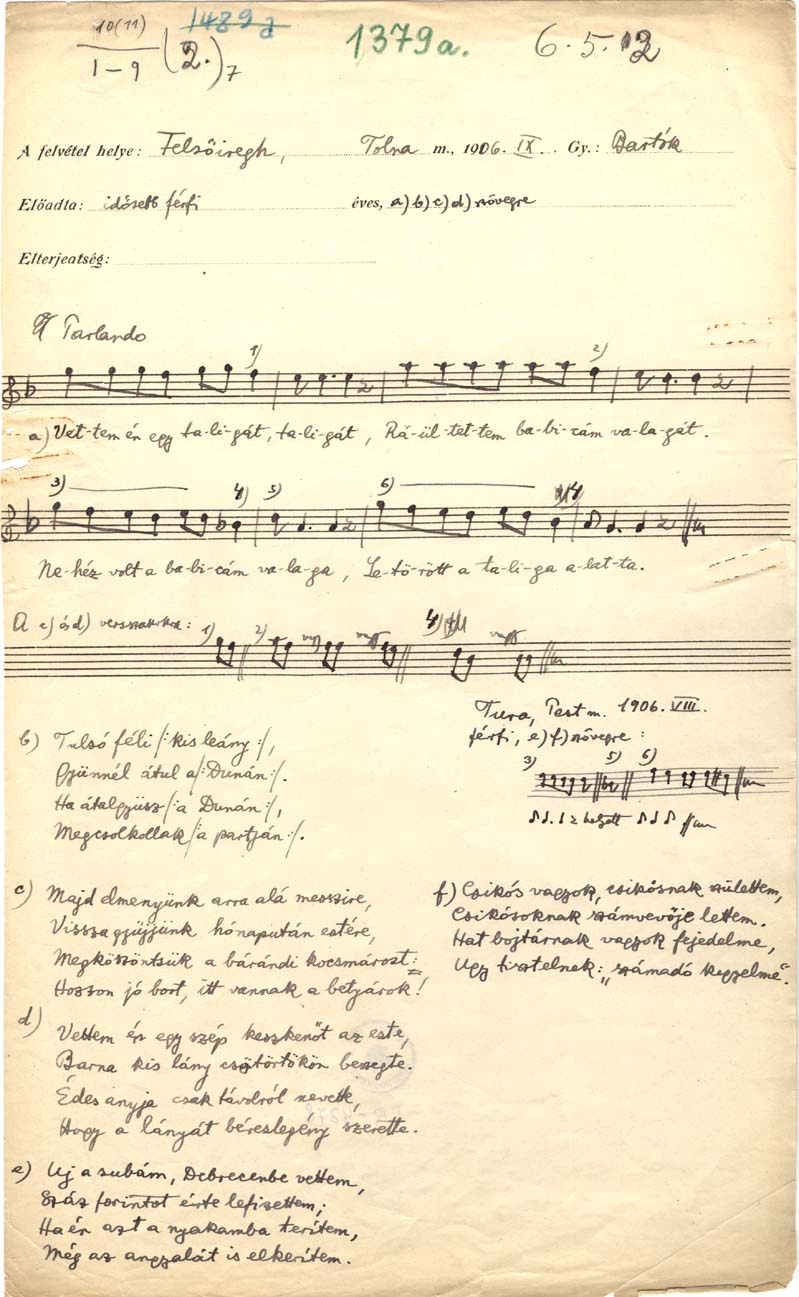 10(11)
1-9 (2.)7
1489a
1379a.
6.5.12
A felvétel helye: Felsőiregh, Tolna m., 1906. IX. Gy.: Bartók
Előadta: idősebb férfi éves, a) b) c) d) szövegre
Elterjeatség:
Parlando
1) 2)
a) Vet-tem én egy ta-li-gát, ta-li-gát, Rá-ül-tet-tem ba-bi-cám va-la-gát.
3) 4) 5) 6)
Ne-héz volt a ba-bi-cám va-la-ga, Le-tö-rött a ta-li-ga a-lat-ta.
A c) és d) versszakokra: 1) 2) vagy vagy 4) vagy
Tura, Pest m. 1906. VIII.
férfi, e) f) szövegre:
3) 5) 6)
helyett
b) Tulsó féli /: kis leány :/,
Gyünnél átul a /: Dunán :/.
Ha átalgyüsz /: a Dunán :/,
Megcsolkollak /: a partján :/.
c) Majd elmenyünk arra alá messzire,
Vissza gyüjjünk hónapután estére,
Megköszöntsük a bárándi kocsmárost:
Hozson jó bort, itt vannak a betyárok!
d)
Vettem én egy szép keszkenőt az este,
Barna kis lány csütörtökön beszegte.
Édes anyja csak távolról nevette,
Hogy a lányát béreslegény szerette.
e) Uj a subám, Debrecenbe vettem,
Száz forintot érte lefizettem;
Ha én azt a nyakamba terítem,
Még az angyalát is elkerítem.
f) Csikós vagyok, csikósnak születtem,
Csikósoknak számvevője lettem.
Hat bojtárnak vagyok fejedelme,
Ugy tisztelnek: „számadó kegyelme".